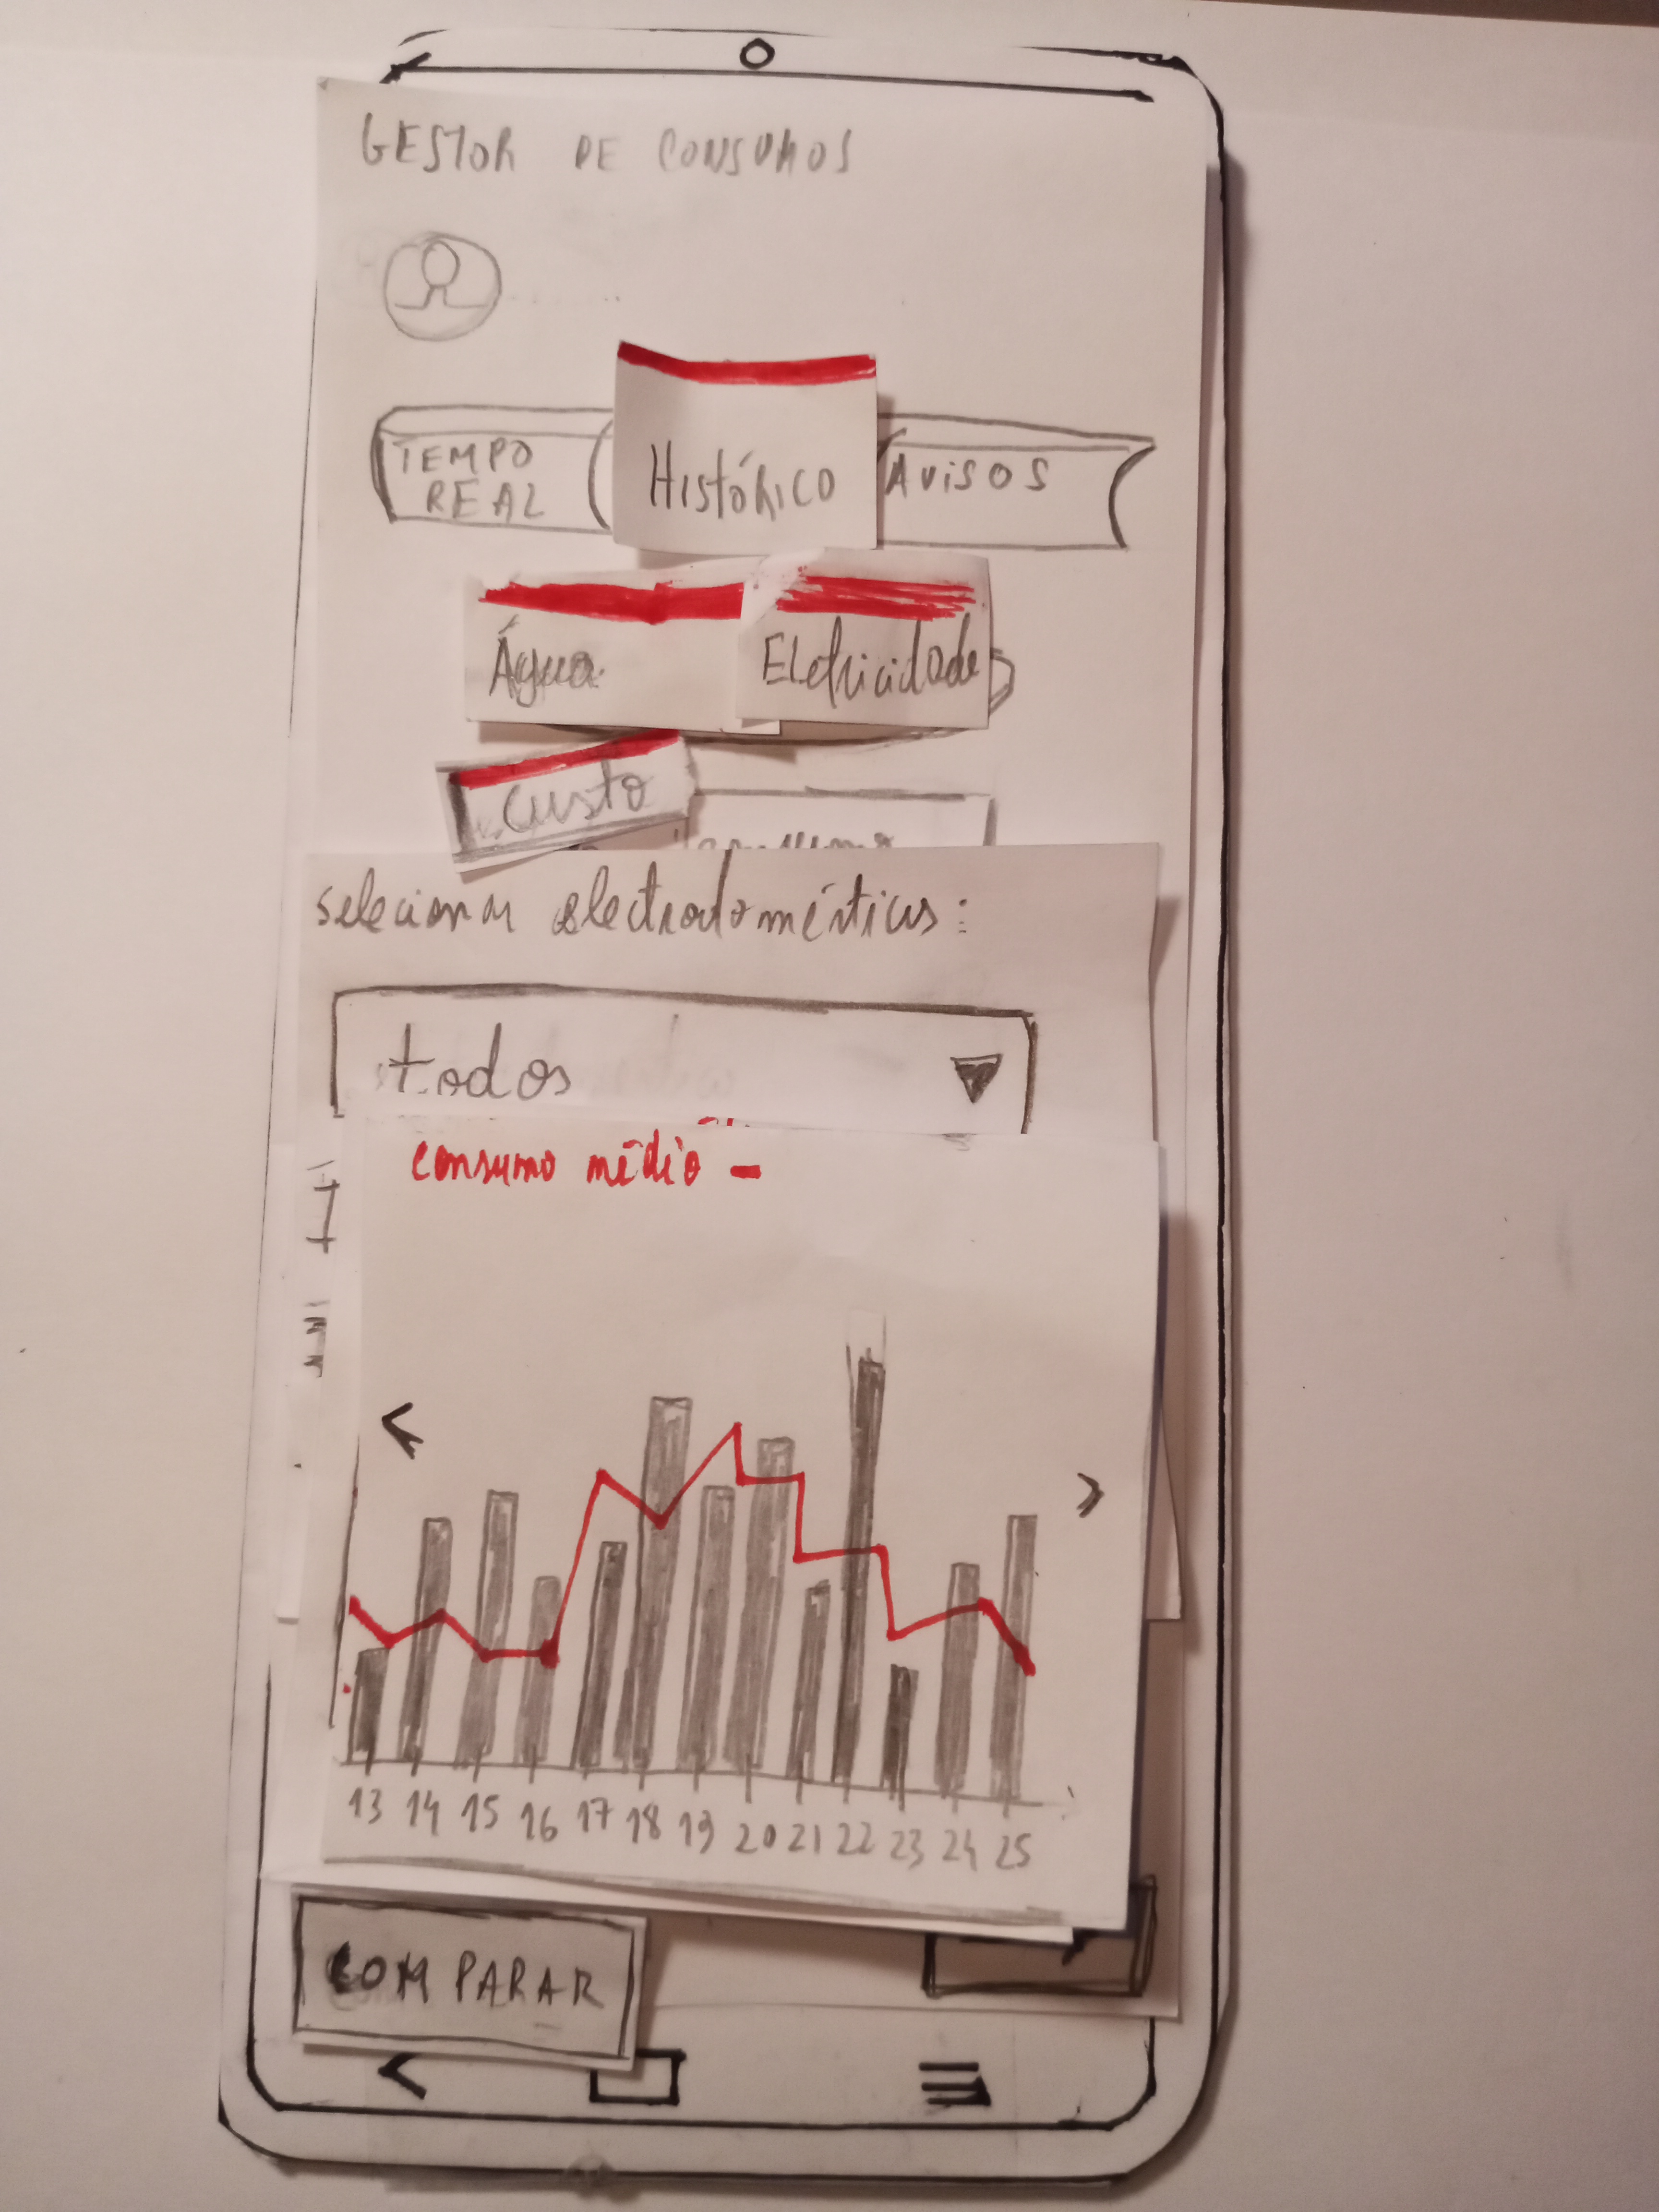 GESTOR DE CONSUMOS
TEMPO REAL
Histórico
AVISOS
Água
Eletricidade
custo
consumo
selecionar electrodomésticos:
todos
consumo médio -
13 14 15 16 17 18 19 20 21 22 23 24 25
COMPARAR